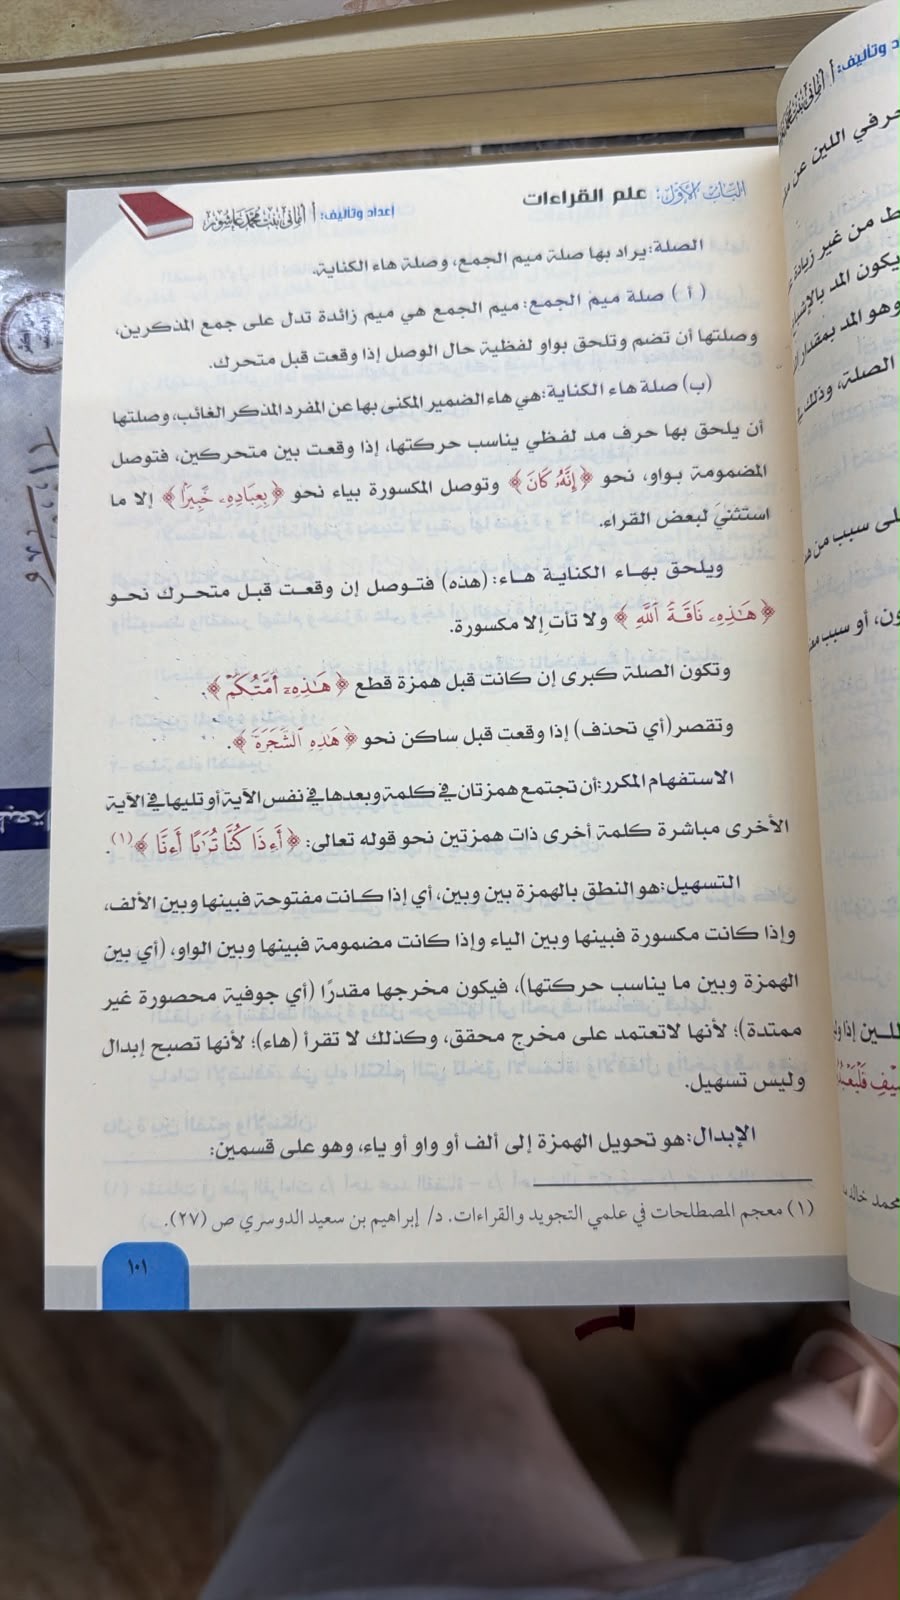 الباب الأول: علم القراءات
إعداد وتأليف: أ/ أماني بنت محمد عاشور
الصلة: يراد بها صلة ميم الجمع، وصلة هاء الكناية.
( أ ) صلة ميم الجمع: ميم الجمع هي ميم زائدة تدل على جمع المذكرين،
وصلتها أن تضم وتلحق بواو لفظية حال الوصل إذا وقعت قبل متحرك.
(ب) صلة هاء الكناية: هي هاء الضمير المكنى بها عن المفرد المذكر الغائب، وصلتها
أن يلحق بها حرف مد لفظي يناسب حركتها، إذا وقعت بين متحركين، فتوصل
المضمومة بواو، نحو ﴿إِنَّهُۥ كَانَ﴾ وتوصل المكسورة بياء نحو ﴿بِعِبَادِهِۦ خَبِيرًا﴾ إلا ما
استثني لبعض القراء.
ويلحق بهاء الكناية هاء: (هذه) فتوصل إن وقعت قبل متحرك نحو
﴿هَٰذِهِۦ نَاقَةُ ٱللَّهِ﴾ ولا تأت إلا مكسورة.
وتكون الصلة كبرى إن كانت قبل همزة قطع ﴿هَٰذِهِۦٓ أُمَّتُكُمْ﴾.
وتقصر (أي تحذف) إذا وقعت قبل ساكن نحو ﴿هَٰذِهِ ٱلشَّجَرَةَ﴾.
الاستفهام المكرر: أن تجتمع همزتان في كلمة وبعدها في نفس الآية أو تليها في الآية
الأخرى مباشرة كلمة أخرى ذات همزتين نحو قوله تعالى: ﴿أَءِذَا كُنَّا تُرَٰبًا أَءِنَّا﴾(١).
التسهيل: هو النطق بالهمزة بين وبين، أي إذا كانت مفتوحة فبينها وبين الألف،
وإذا كانت مكسورة فبينها وبين الياء وإذا كانت مضمومة فبينها وبين الواو، (أي بين
الهمزة وبين ما يناسب حركتها)، فيكون مخرجها مقدرًا (أي جوفية محصورة غير
ممتدة)؛ لأنها لاتعتمد على مخرج محقق، وكذلك لا تقرأ (هاء)؛ لأنها تصبح إبدال
وليس تسهيل.
الإبدال: هو تحويل الهمزة إلى ألف أو واو أو ياء، وهو على قسمين:
(١) معجم المصطلحات في علمي التجويد والقراءات. د/ إبراهيم بن سعيد الدوسري ص (٢٧).
١٠١
حرفي اللين عن
من غير زيادة
يكون المد بالإشباع
وهو المد بمقدار
الصلة، وذلك
على سبب من
أو سبب
اللين إذا
محمد خالد